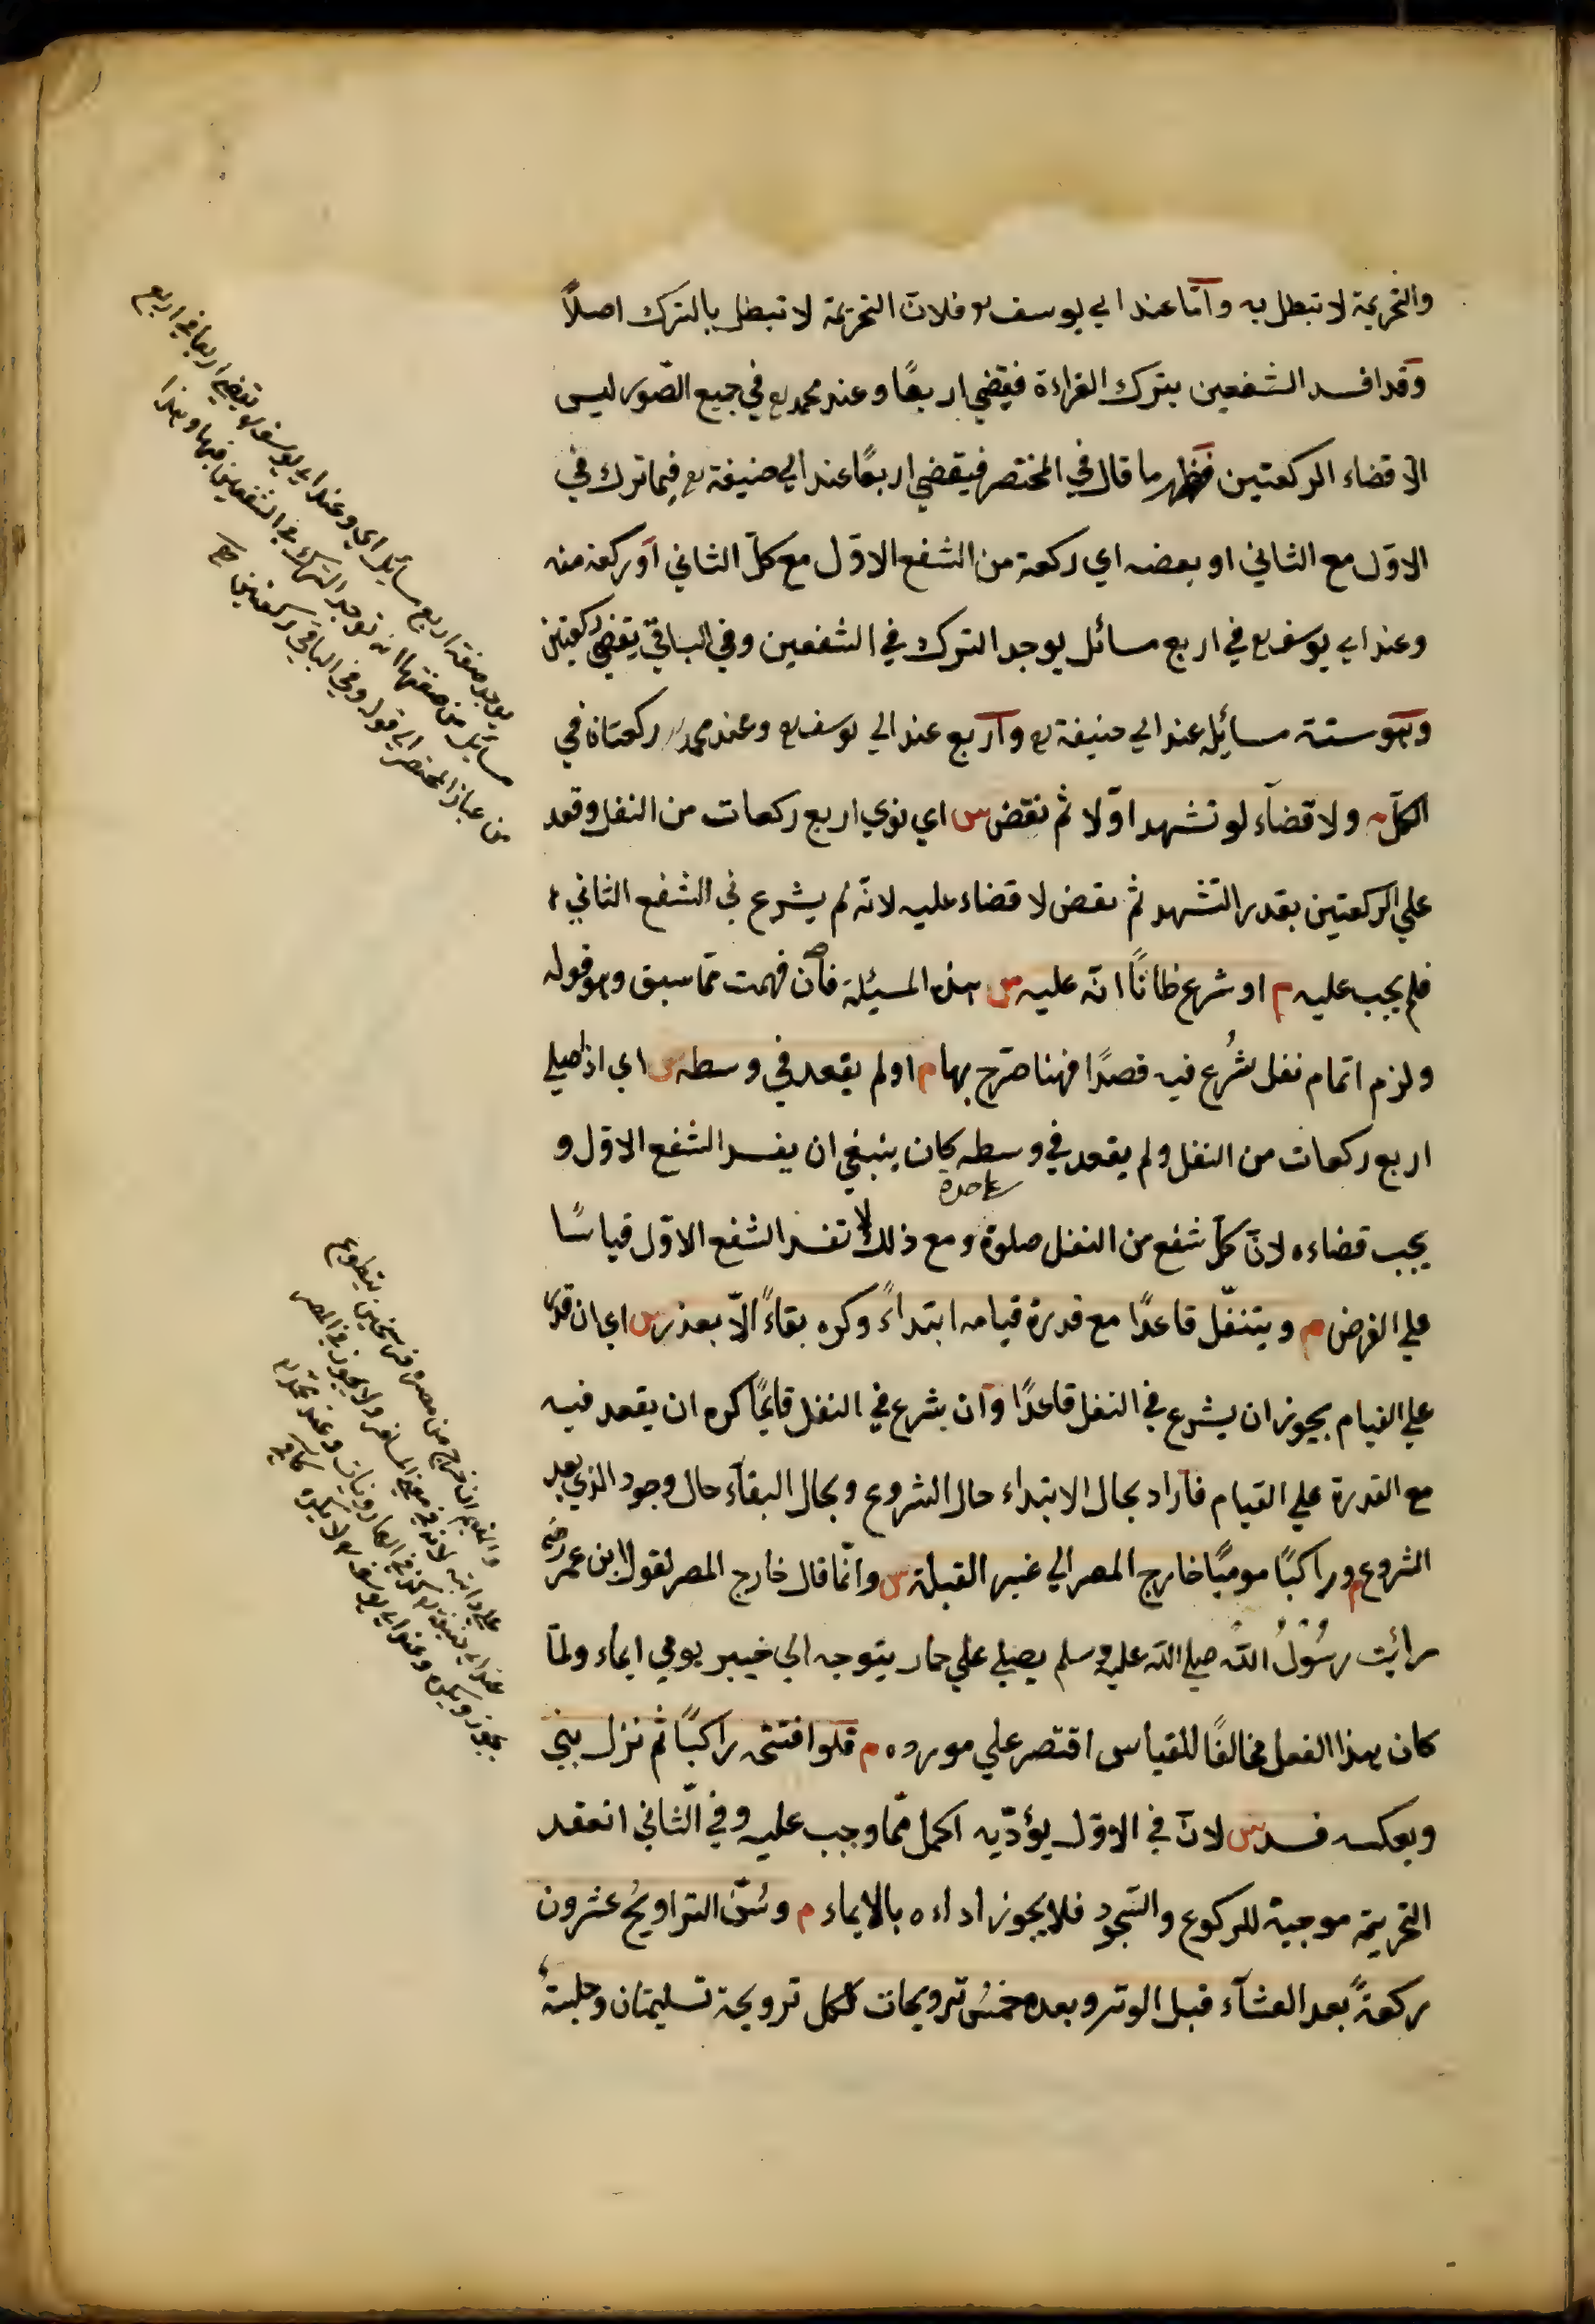 والتحريمة لا تبطل به وامّا عند ابي يوسف رح فلانّ التحريمة لا تبطل بالترك اصلاً
وقد افسد الشفعين بترك القراءة فيقضي اربعًا وعند محمد رح في جميع الصّور ليس
الا قضاء الركعتين فظهر ما قال في المختصر فيقضي اربعًا عند ابي حنيفة رح فيما ترك في
الاوّل مع الثاني او بعضه اي ركعة من الشفع الاوّل مع كلّ الثاني او ركعة منه
وعند ابي يوسف رح في اربع مسائل يوجد الترك في الشفعين وفي الباقي يقضي ركعتين
وهو ستة مسائل عند ابي حنيفة رح واربع عند ابي يوسف رح وعند محمد رح ركعتان في
الكلّ م ولا قضآء لو تشهد اوّلا ثم نقض س اي نوي اربع ركعات من النفل وقعد
علي الركعتين بقدر التشهد ثم نقض لا قضاء عليه لانّه لم يشرع في الشفع الثاني
فلم يجب عليه م او شرع ظانًا انّه عليه س هذه المسيئلة فان فهمت ممّا سبق وهو قوله
ولزم اتمام نفل شُرع فيه قصدًا فهنا صرّح بها م او لم يقعد في وسطه س اي اذا صلي
اربع ركعات من النفل ولم يقعد في وسطه كان ينبغي ان يفسد الشفع الاوّل و
يجب قضاءه لانّ كلّ شفع من النفل صلوة علحدة ومع ذلك لا تفسد الشفع الاوّل قياسًا
علي الفرض م ويتنفّل قاعدًا مع قدرة قيامه ابتداءً وكره بقاءً الّا بعذر س اي ان قدر
علي القيام يجوز ان يشرع في النفل قاعدًا وان شرع في النفل قايمًا كره ان يقعد فيه
مع القدرة علي القيام فاراد بحال الابتداء حال الشروع وبحال البقآء حال وجود الذي بعد
الشروع م وراكبًا موميًا خارج المصر الي غير القبلة س وانّما قال خارج المصر لقول ابن عمر رضه
رأيت رسُولُ اللّه صلي اللّه عليه وسلم يصلي علي حمار يتوجه الي خيبر يومي ايماء ولمّا
كان هذا الفعل مخالفًا للقياس اقتصر علي مورده م فلو افتتح راكبًا ثم نزل بني
وبعكسه فسد س لانّ في الاوّل يؤدّيه اكمل ممّا وجب عليه وفي الثّاني انعقد
التحريمة موجبة للركوع والسّجود فلا يجوز اداءه بالايماء م وسُنّ التراويحُ عشرون
ركعةً بعد العشآء قبل الوتر وبعده خمسُ ترويحات لكل ترويحة تسليمتان وجلسةٌ
مسايل اي وعند ابي يوسف رح يقضي اربعا في اربع